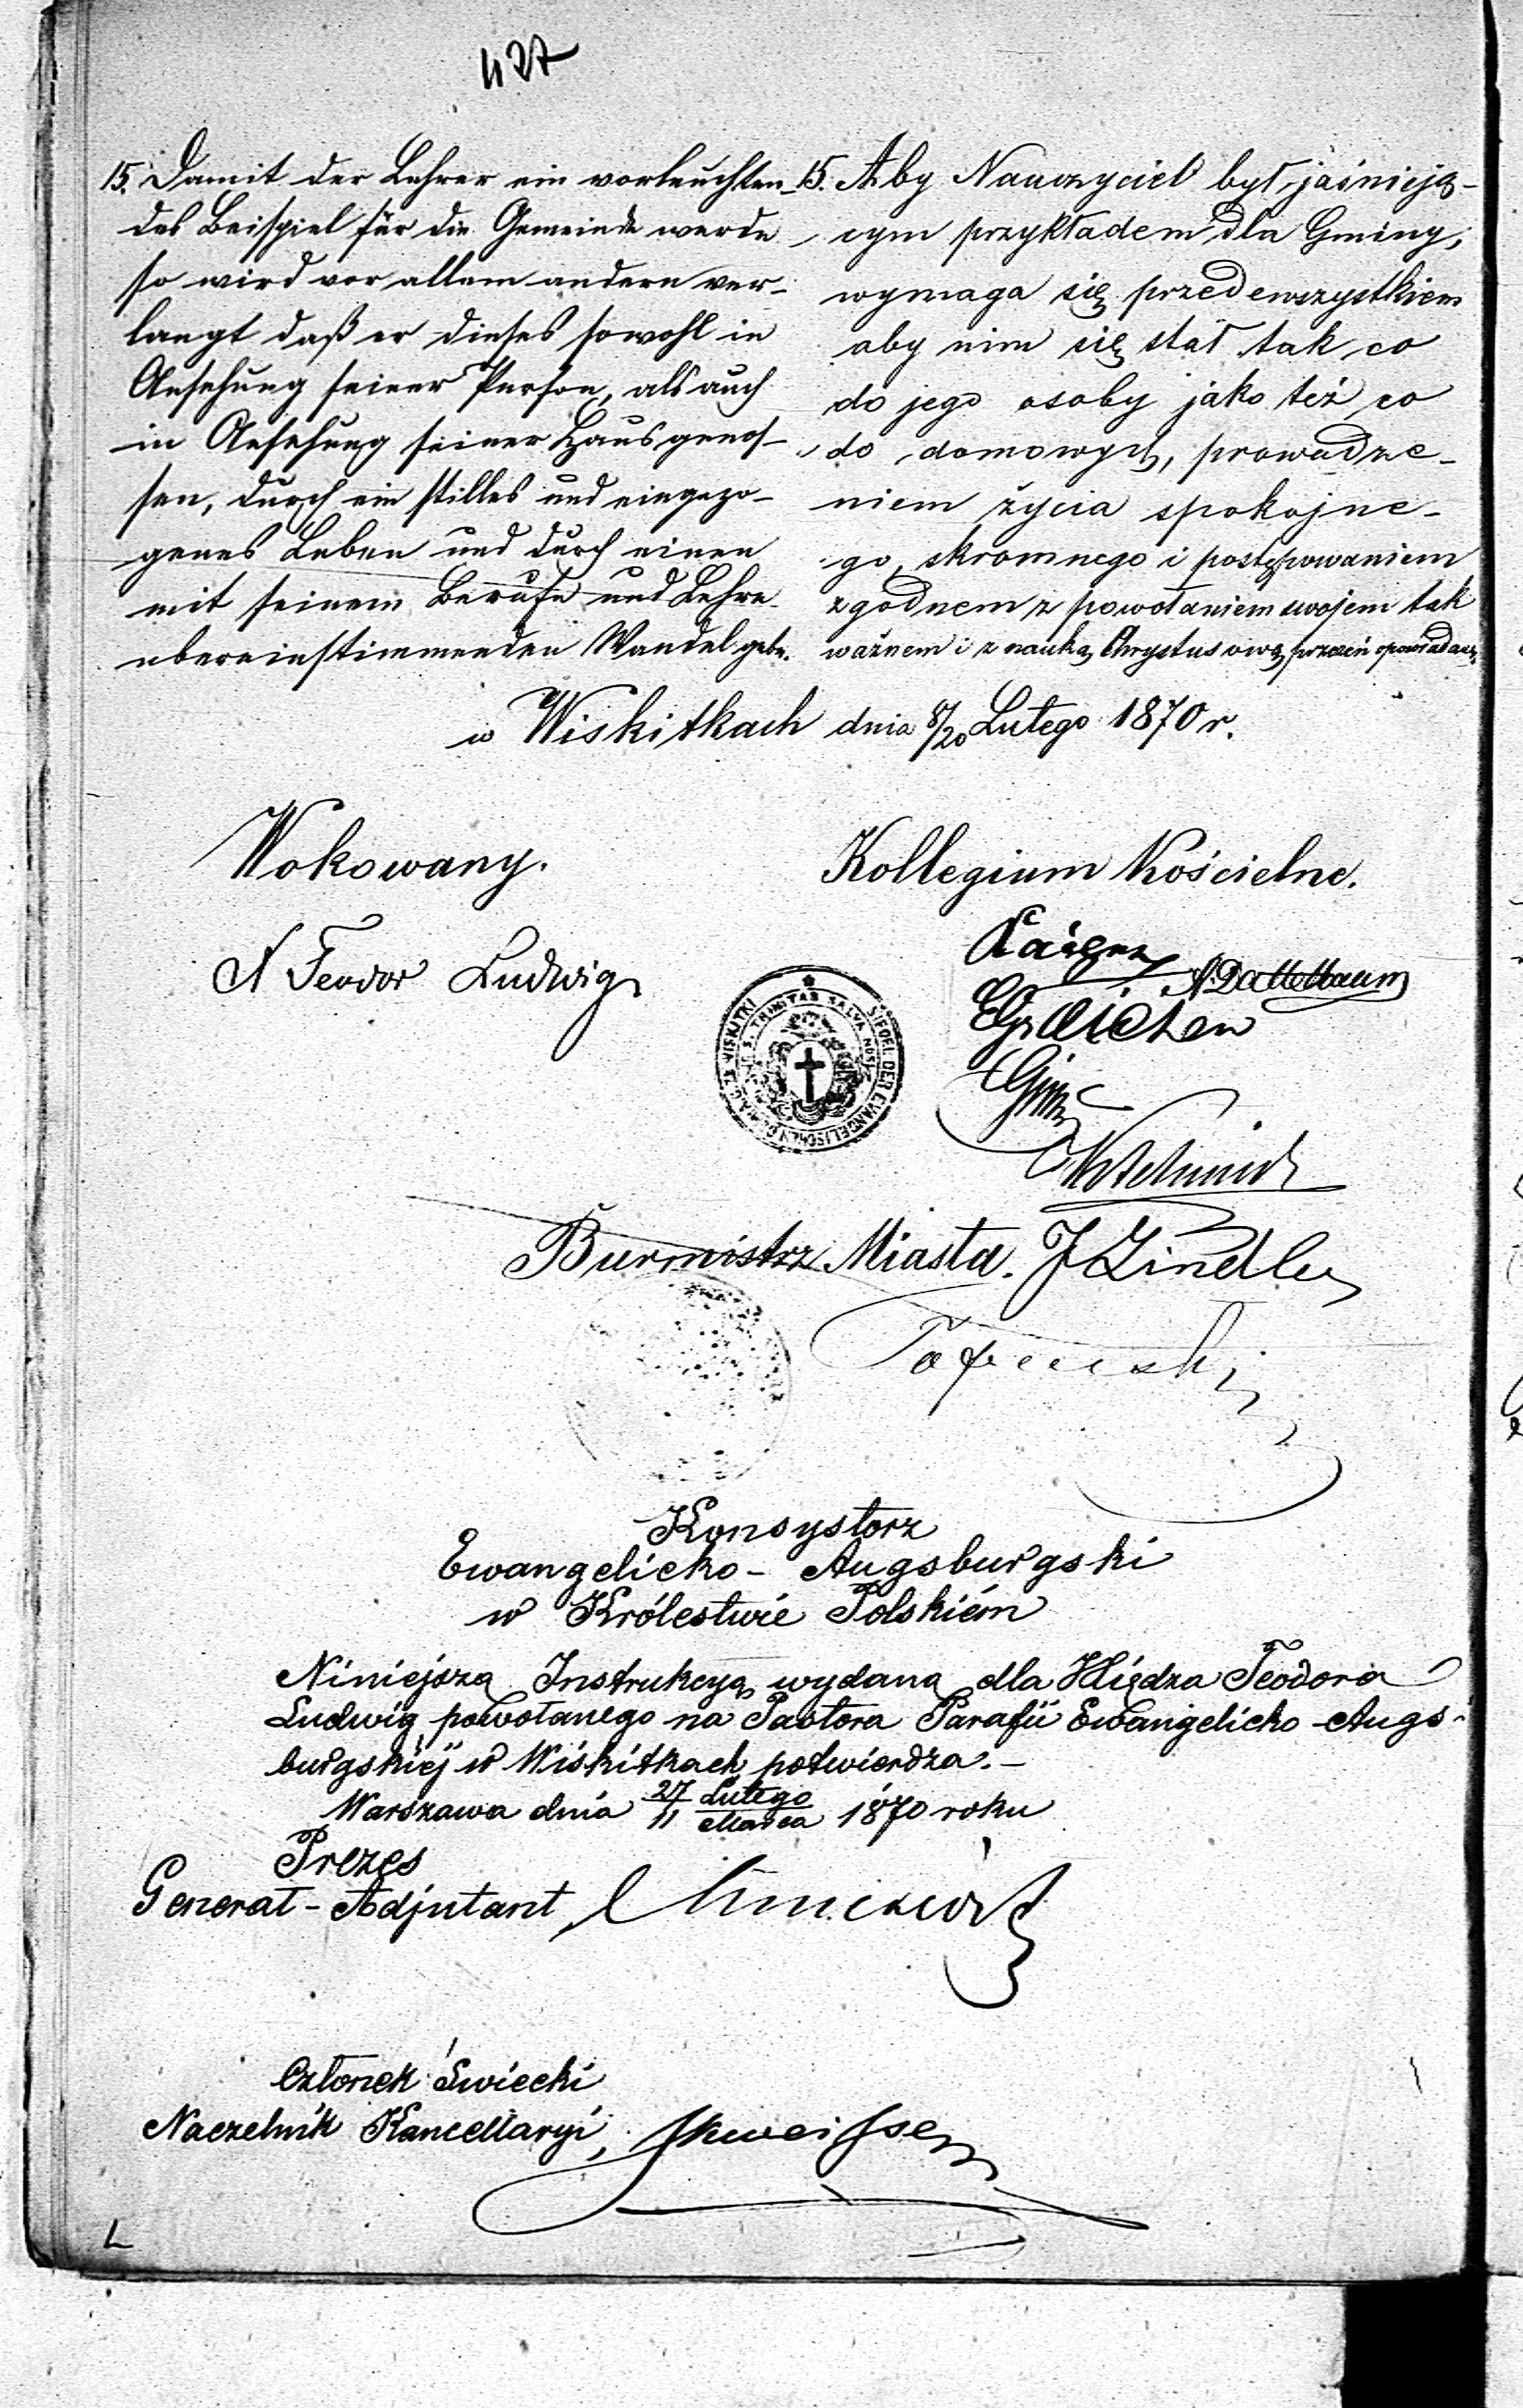 427
15. Damit der Lehrer ein vorleuchten-
des Beispiel für die Gemeinde werde
so wird vor allem andern ver-
langt daß er dieses sowohl in
Ansehung seiner Person, als auch
in Ansehung seiner Hausgenos-
sen, durch ein stilles und eingezo-
genes Leben und durch einen
mit seinem Berufe und Lehre
übereinstimmenden Wandel gebe.
15. Aby Nauczyciel był jaśnieją-
cym przykładem dla Gminy,
wymaga się przedewszystkiem
aby nim się stał tak co
do jego osoby jako też co
do domowych, prowadze-
niem życia spokojne-
go, skromnego i postępowaniem
zgodnem z powołaniem swojem tak
ważnem i z nauką Chrystusową, przezeń opowiadaną.
w Wiskitkach dnia 8/20 Lutego 1870 r.
Wokowany.
Kollegium Kościelne.
N Teodor Ludwig
A. Dattelbaum
SIEGEL DER EVANGELISCHEN GEMEINDE ZU WISKITKI
S. TRINITAS SALVA NOS
Burmistrz Miasta. J Zindler
Konsystorz
Ewangelicko - Augsburgski
w Królestwie Polskiém
Niniejszą Instrukcyą wydaną dla Xiędza Teodora
Ludwig powołanego na Pastora Parafii Ewangelicko - Augs-
burgskiéj w Wiskitkach potwierdza. -
Warszawa dnia 27 Lutego / 11 Marca 1870 roku
Prezes
Generał - Adjutant,
Członek Świecki
Naczelnik Kancellaryi,
L